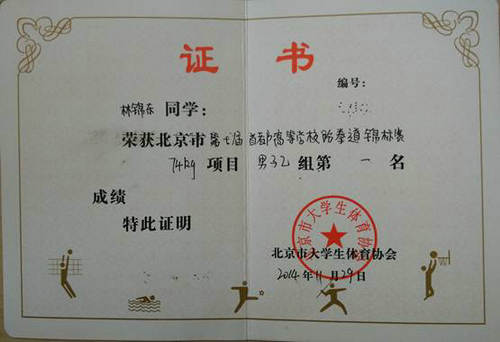 证 书
编号：
林锦东 同学：
荣获北京市 第七届 首都高等学校跆拳道锦标赛
74kg 项目 男子乙 组第 一 名
成绩
特此证明
北京市大学生体育协会
北京市大学生体育协会
2014年11月29日